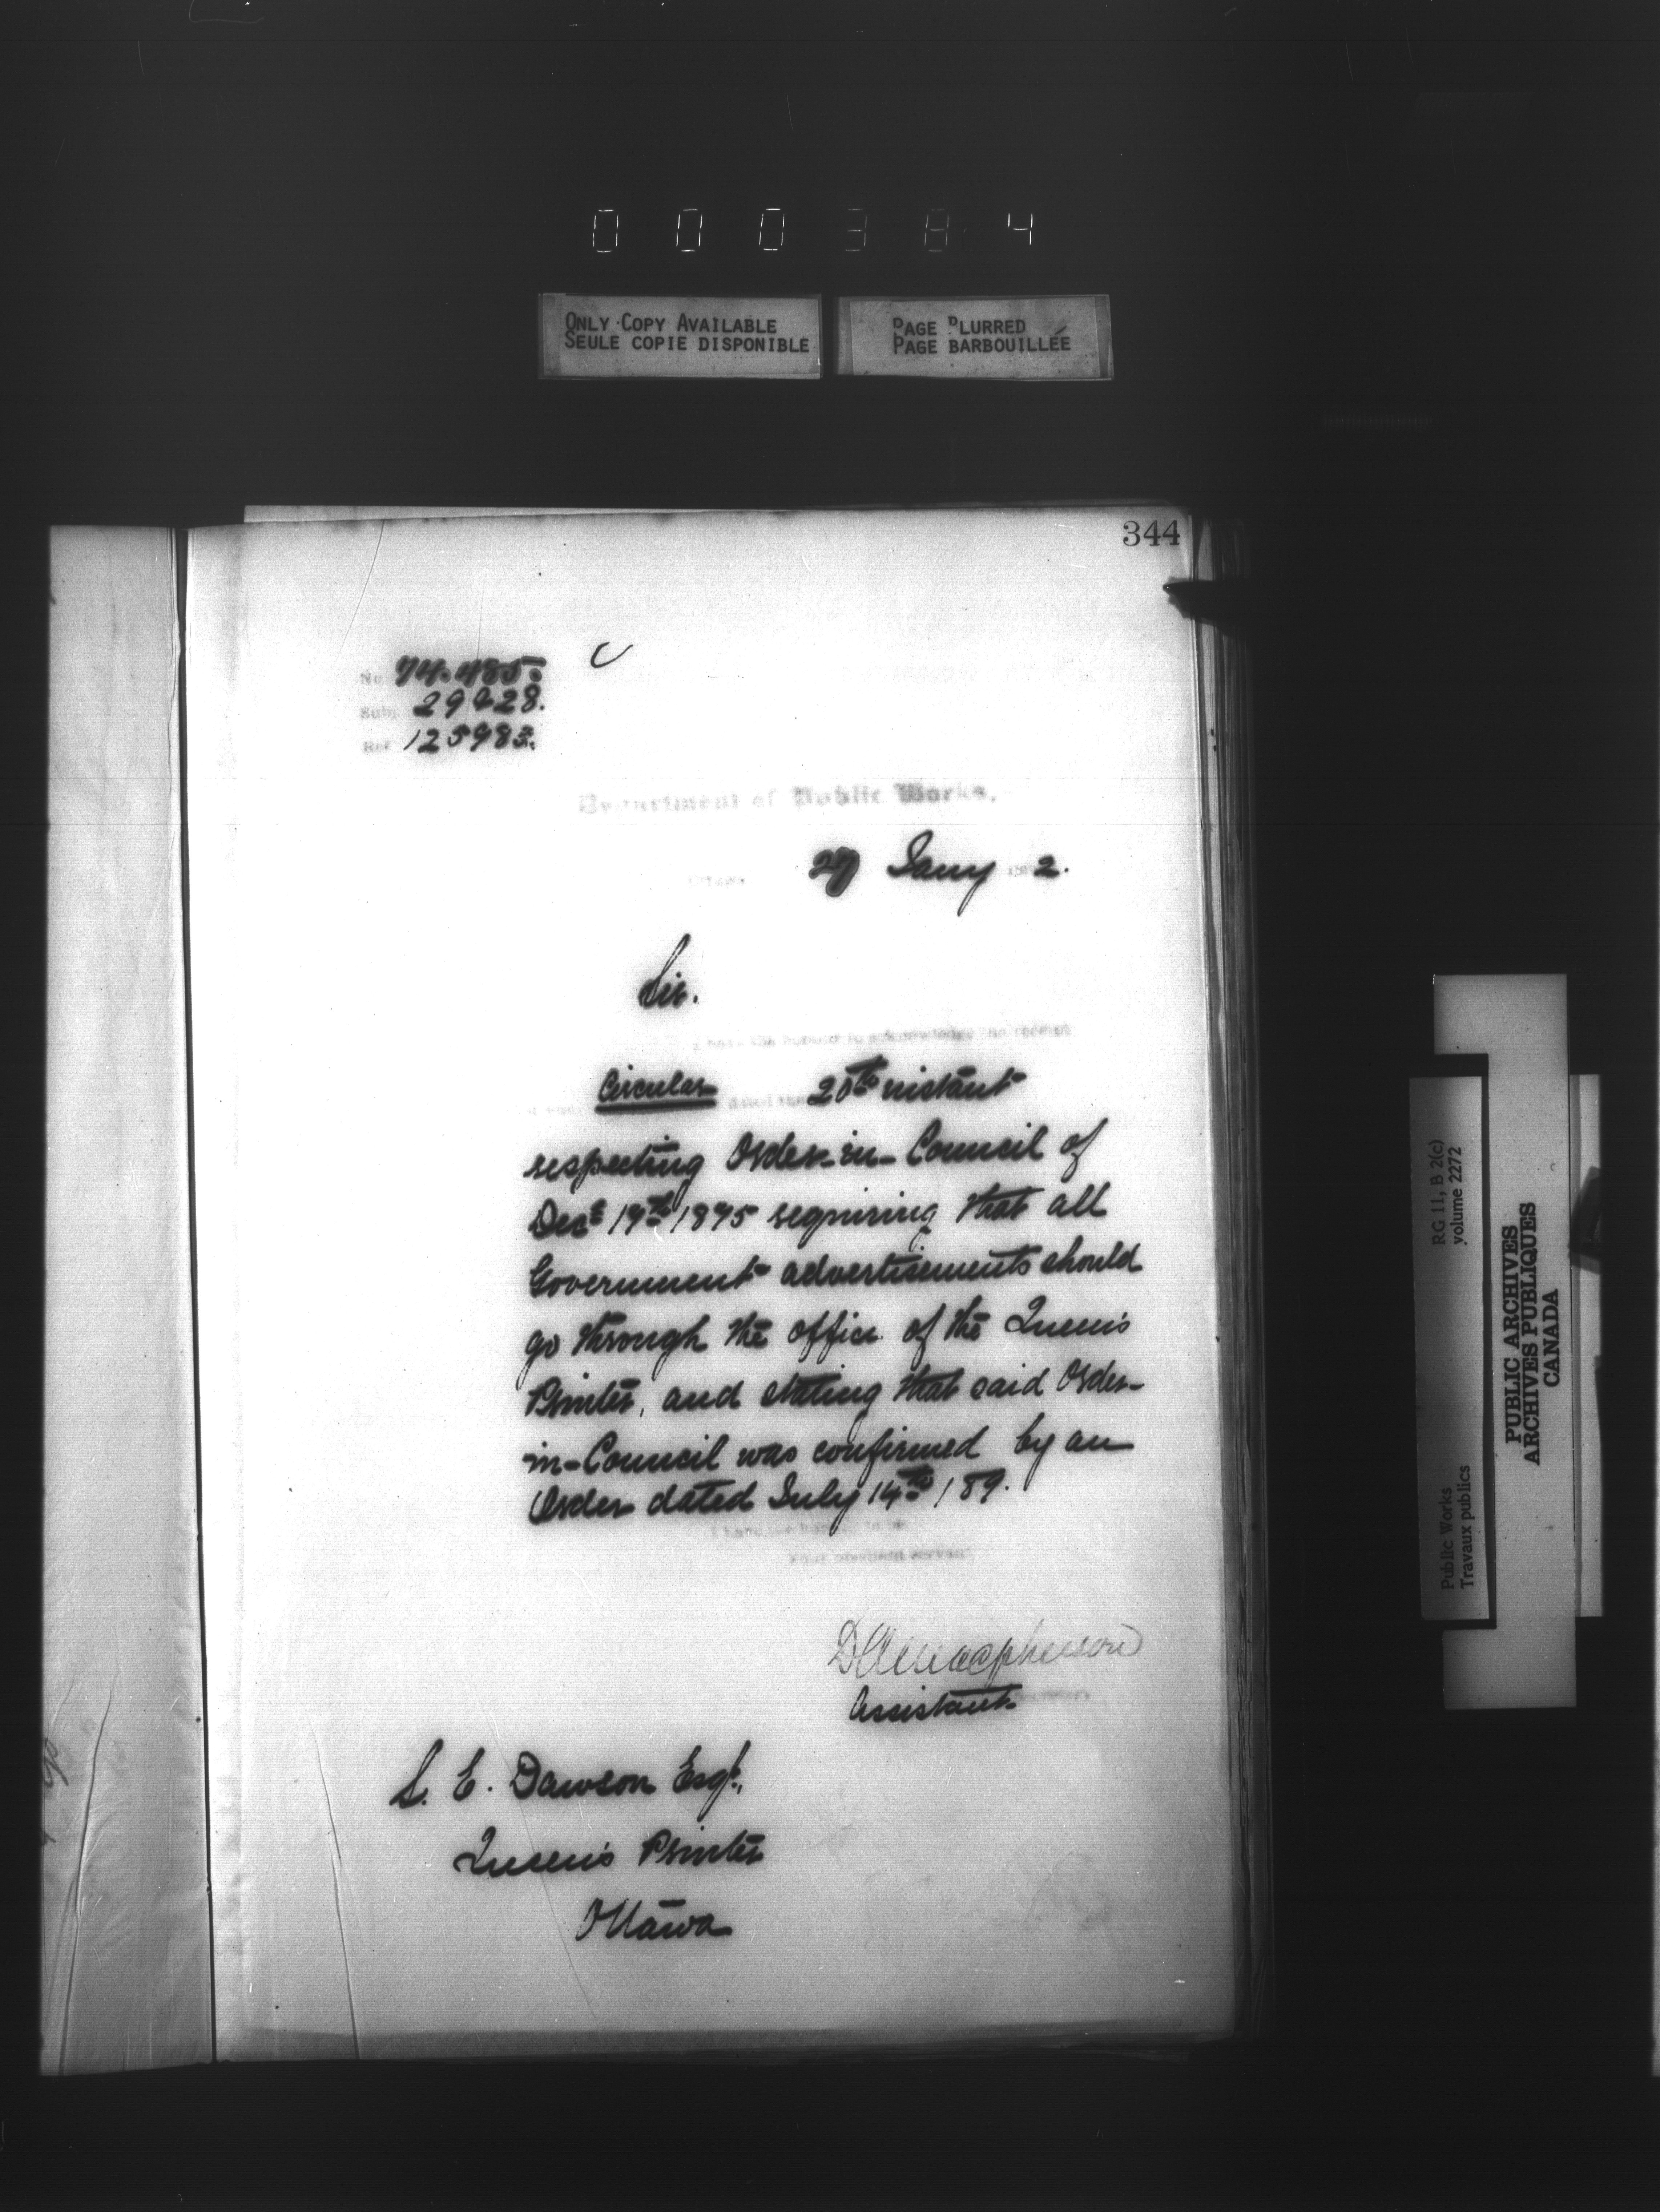 000384
ONLY COPY AVAILABLE
SEULE COPIE DISPONIBLE
PAGE BLURRED
PAGE BARBOUILLÉE
344
No 74.485.
Subj 29428.
Ref 125983.
Department of Public Works.
Ottawa 27 Jany 2.
Sir.
I have the honour to acknowledge the receipt
Circular dated the 20th instant
respecting Order-in-Council of
Decr 19th 1895 requiring that all
Government advertisements should
go through the office of the Queen's
Printer, and stating that said Order-
in-Council was confirmed by an
Order dated July 14th 189.
I have the honour to be
Your obedient servant
DAMacpherson
Assistant
S. E. Dawson Esqr.,
Queen's Printer
Ottawa
RG 11, B 2(c)
volume 2272
Public Works
Travaux publics
PUBLIC ARCHIVES
ARCHIVES PUBLIQUES
CANADA